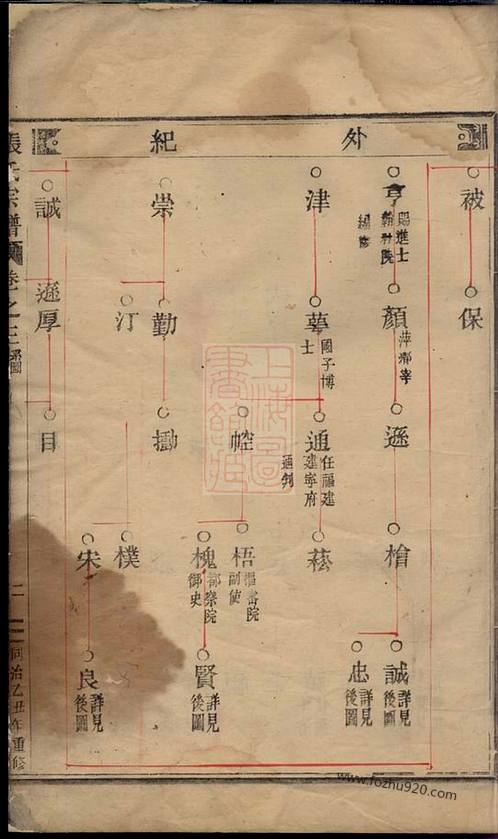 外紀
被
保
亨 賜進士翰林院編修
顏 萍鄉宰
遜
檜
誠 詳見後圖
忠 詳見後圖
津
蕚 國子博士
通 任福建建寧府通判
菘
㤶
梧 樞密院副使
槐 都察院御史
賢 詳見後圖
崇
勤
勷
汀
樸
宋
良 詳見後圖
張氏宗譜 卷之三 系圖
二
同治乙丑年重修
誠
遜厚
目
上海圖書館藏
www.fozhu920.com